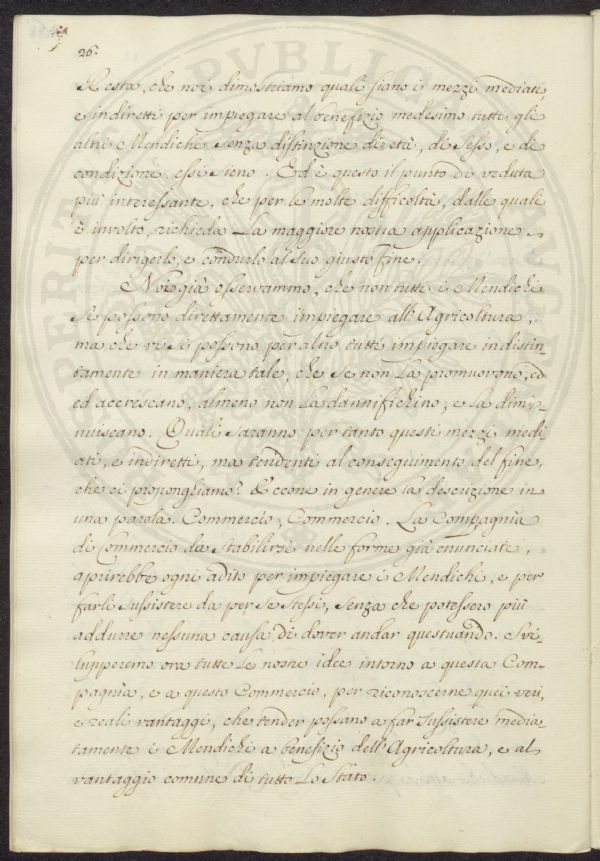 26.
Resta, che noi dimostriamo quali siano i mezzi mediati
e indiretti per impiegare al benefizio medesimo tutti gli
altri Mendichi senza distinzione di età, di sesso, e di
condizione essi sieno. Ed è questo il punto di veduta
più interessante, che per le molte difficoltà, dalle quali
è involto, richieda la maggiore nostra applicazione
per dirigerlo, e condurlo al suo giusto fine.
Noi già osservammo, che non tutti i Mendichi
si possono direttamente impiegare all'Agricoltura,
ma che vi si possono per altro tutti impiegare indistin-
tamente in maniera tale, che se non la promuovono, ed
ed accrescano, almeno non la dannifichino, e la dimi-
nuiscano. Quali saranno per tanto questi mezzi medi-
ati, e indiretti, ma tendenti al conseguimento del fine,
che ci proponghiamo? Eccone in genere la descrizione in
una parola. Commercio, Commercio. La Compagnia
di Commercio da stabilirsi nelle forme già enunciate,
aprirebbe ogni adito per impiegare i Mendichi, e per
farli sussistere da per se stessi, senza che potessero più
addurre nessuna causa di dover andar questuando. Svi-
lupperemo ora tutte le nostre idee intorno a questa Com-
pagnia, e a questo Commercio, per riconoscerne quei veri,
e reali vantaggi, che tender possano a far sussistere media-
tamente i Mendichi a benefizio dell'Agricoltura, e al
vantaggio comune di tutto lo Stato.